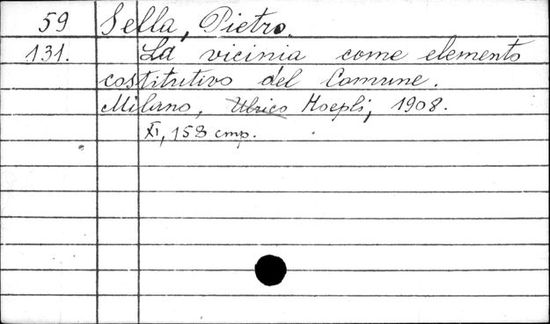 59 Sella, Pietro.
131. La vicinia come elemento
costitutivo del Comune.
Milano, Ulrico Hoepli, 1908.
XI, 158 стр.